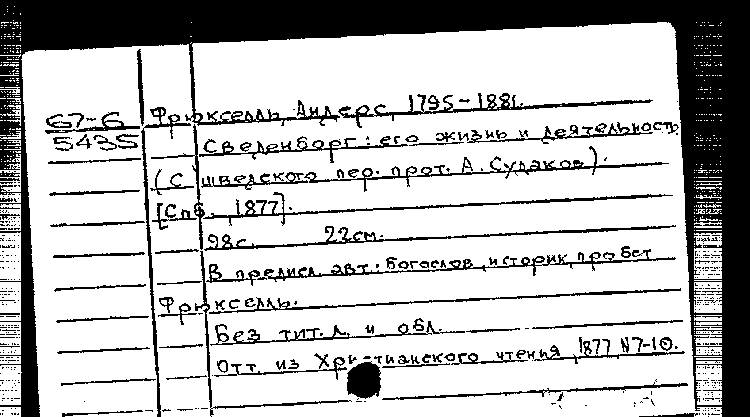 67-6 Фрюкселль, Андерс, 1795-1881.
5435 Сведенборг: его жизнь и деятельность
(С шведского пер. прот. А. Судаков).
[Спб., 1877].
98с. 22см.
В предисл. авт.: богослов, историк, пробст
Фрюкселль.
Без тит. л. и обл.
Отт. из Христианского чтения, 1877 N7-10.